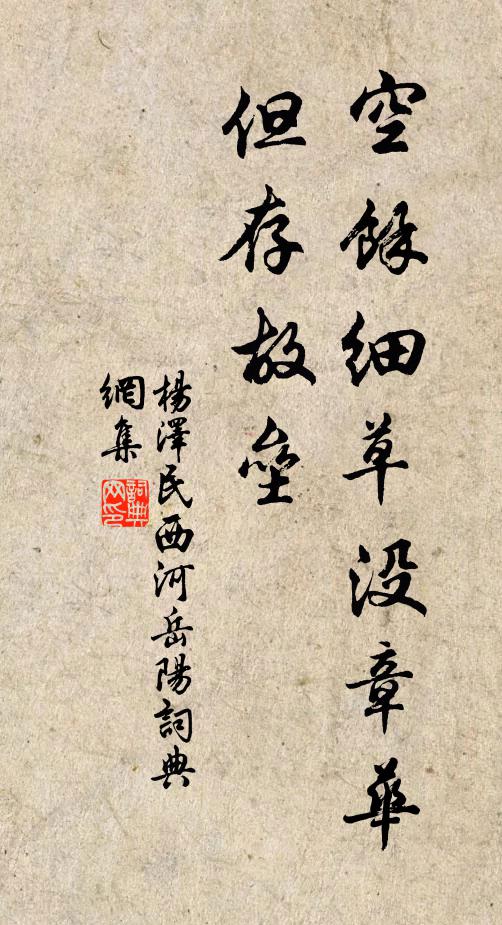 空餘細草没章華
但存故壘
楊澤民西河岳陽詞典
網集
詞典網印